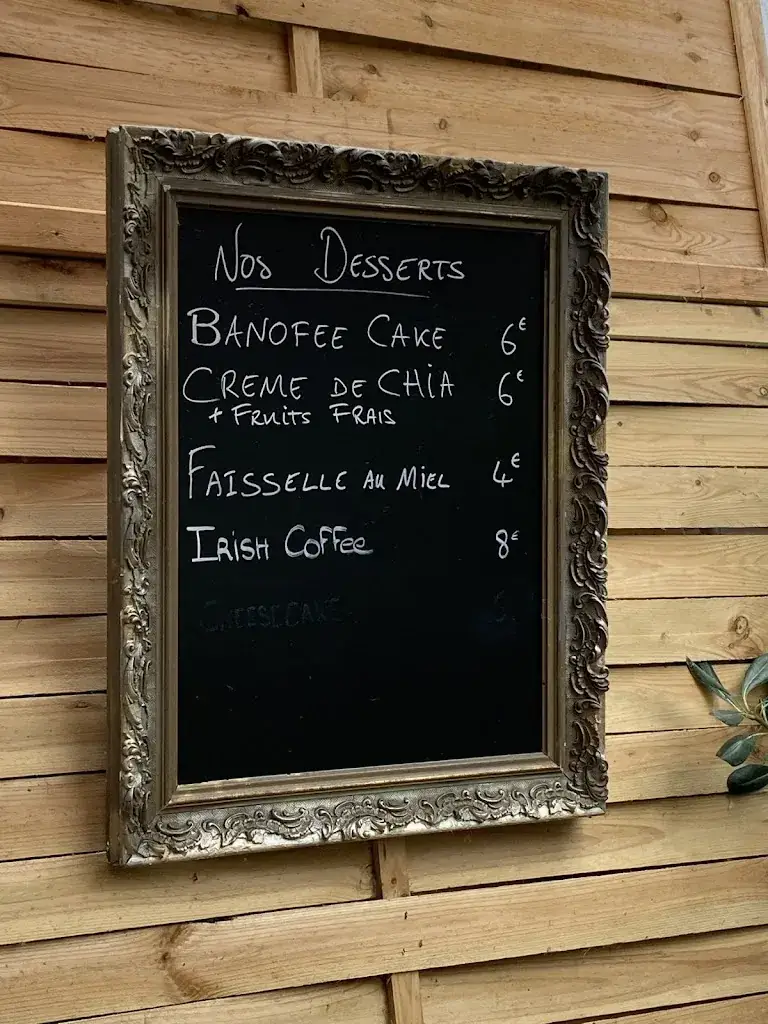 Nos Desserts
Banofee Cake 6€
Creme de Chia 6€
+ Fruits Frais
Faisselle au Miel 4€
Irish Coffee 8€
Cheesecake